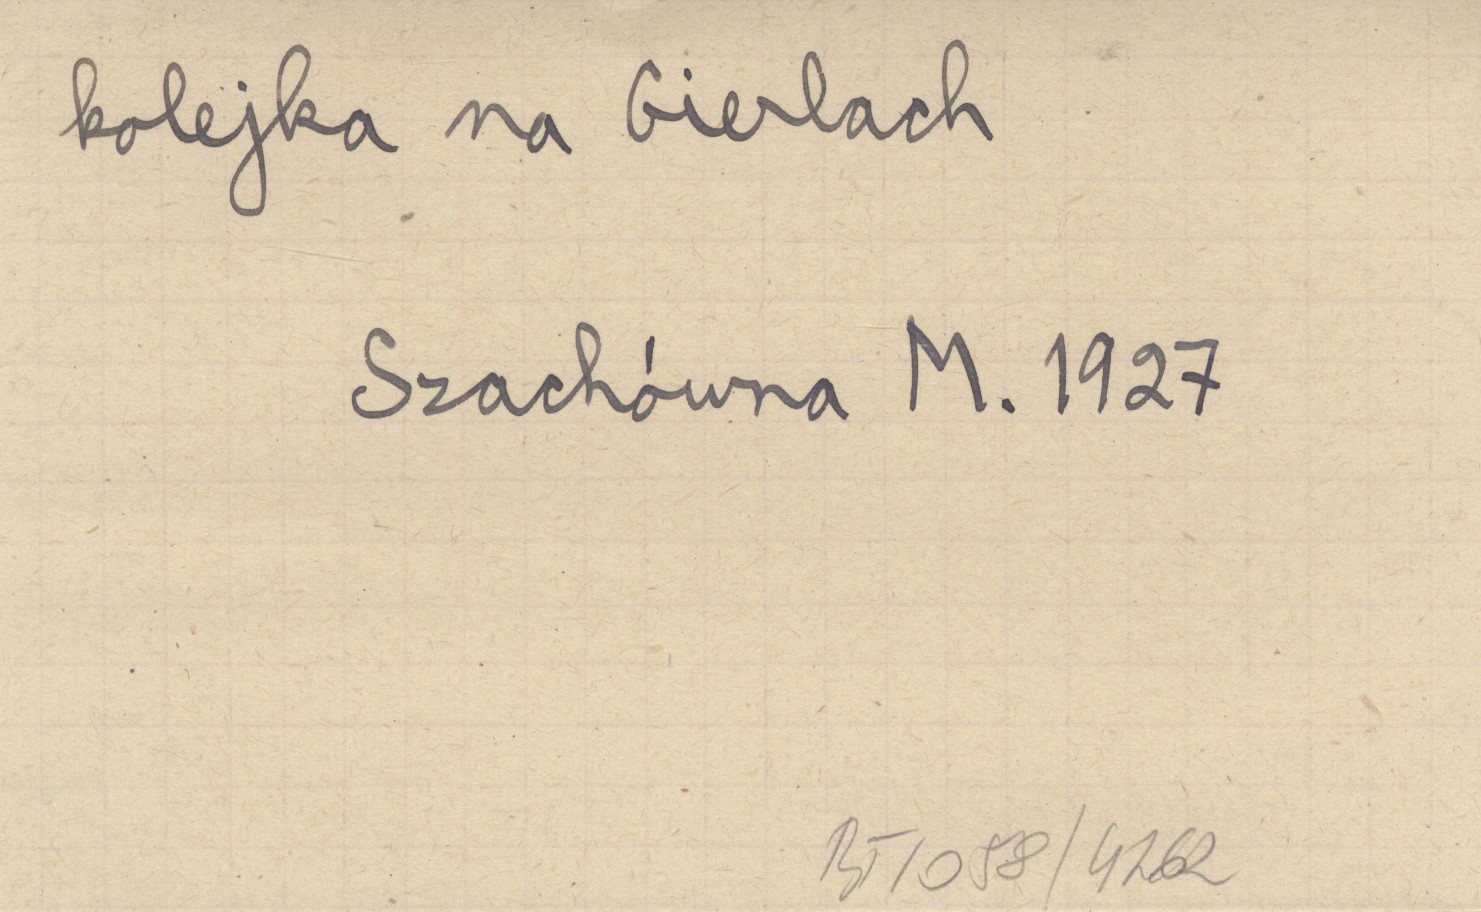 kolejka na Gierlach
Szachówna M. 1927
BT/088/4262